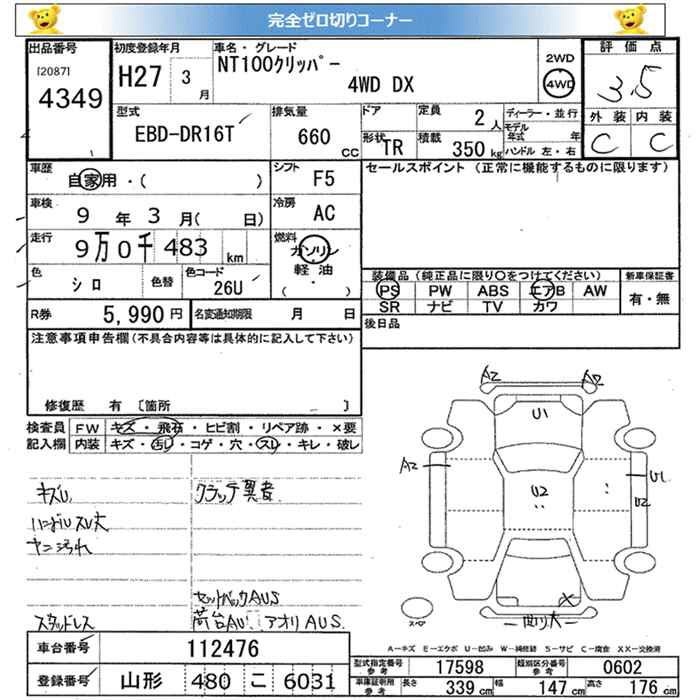 完全ゼロ切りコーナー
出品番号 初度登録年月 車名・グレード 2WD 評価点
[2087] H27 3月 NT100クリッパー 4WD 3.5
4349 4WD DX
型式 排気量 ドア 定員 2人 ディーラー・並行 外装 内装
EBD-DR16T 660cc モデル年式 年 C C
形状 TR 積載 350kg ハンドル 左・右
車歴 シフト セールスポイント (正常に機能するものに限ります)
自家用・( ) F5
車検 9年3月( 日) 冷房 AC
走行 9万0千483km 燃料 ガソリン
軽油
・
( )
色 シロ 色替 色コード 26U
装備品 (純正品に限り○をつけてください) 新車保証書
PS PW ABS エアB AW 有・無
SR ナビ TV カワ
R券 5,990円 名変通知期限 月 日 後日品
注意事項申告欄 (不具合内容等は具体的に記入して下さい)
修復歴 有 〔箇所 〕
検査員 FW キズ・飛石・ヒビ割・リペア跡・×要
記入欄 内装 キズ・汚レ・コゲ・穴・スレ・キレ・破レ
A2 A2
U1
A2 U2 U1
U2
キズU クラッチ異音
ハンドルスレ大
ヤニ汚れ
セットバックAUS
スタッドレス 荷台AU アオリAUS
スペア
A-キズ E-エクボ U-凹み W-補修跡 S-サビ C-腐食 XX-交換済
車台番号 112476
登録番号 山形 480 こ 6031
型式指定番号 参考 17598 類別区分番号 参考 0602
車庫証明用 参考 長さ 339cm 幅 147cm 高さ 176cm